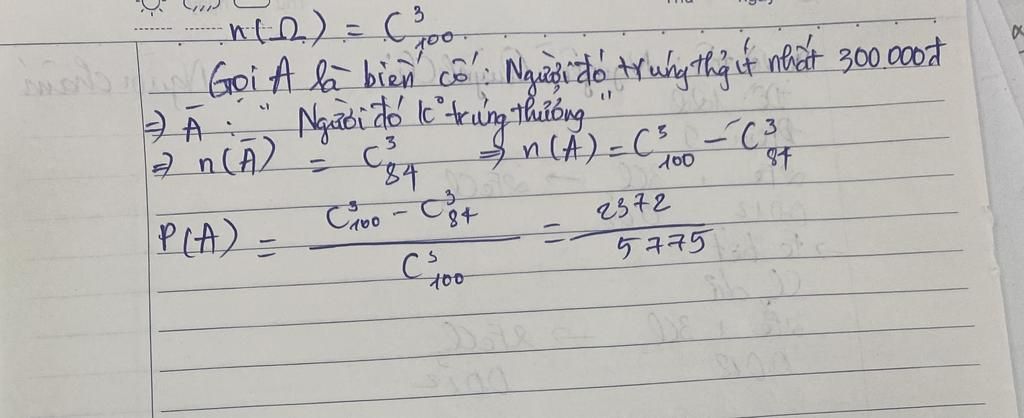 n(Ω) = C³₁₀₀.
Gọi A là biến cố: Người đó trúng thg ít nhất 300.000đ
⇒ Ā : " Người đó k° trúng thưởng "
⇒ n(Ā) = C³₈₄ ⇒ n(A) = C³₁₀₀ - C³₈₄
P(A) = (C³₁₀₀ - C³₈₄) / C³₁₀₀ = 2372 / 5775